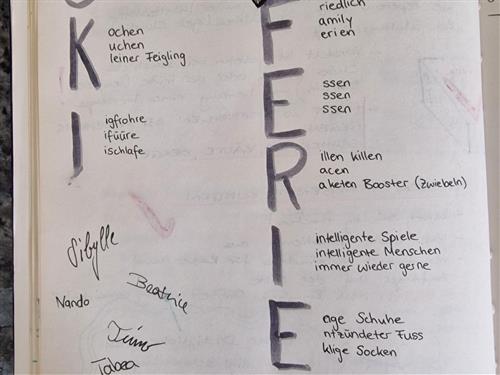 K
ochen
uchen
leiner Feigling
I
igfrohre
ifüüre
ischlafe
Sibylle
Beatrice
Nando
Timo
Tabea
F
riedlich
amily
erien
E
ssen
ssen
ssen
R
illen killen
acen
aketen Booster (Zwiebeln)
I
intelligente Spiele
intelligente Menschen
immer wieder gerne
E
nge Schuhe
ntzündeter Fuss
klige Socken